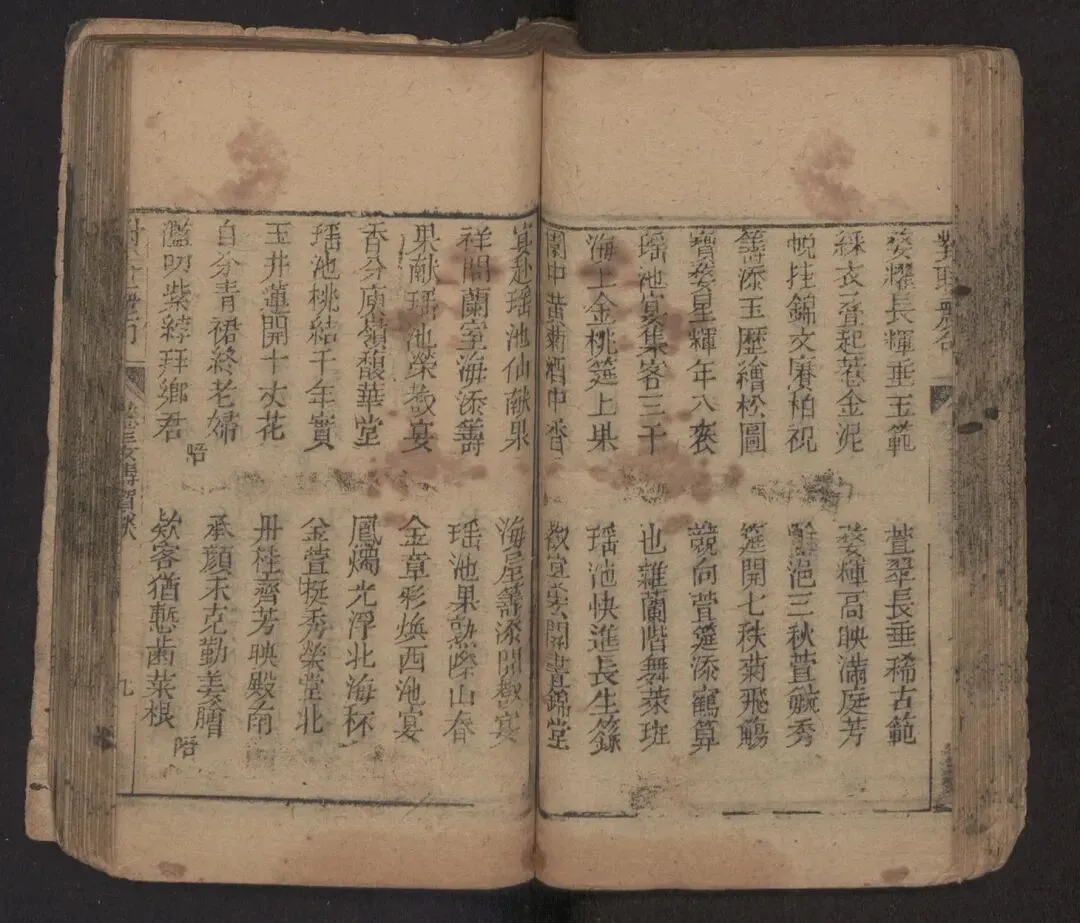 對聯
婺耀長輝垂玉範
萱翠長垂稀古範
綵衣疊起花金泥
婺輝高映滿庭芳
帨挂錦文賡柏祝
浥三秋萱毓秀
籌添玉歷繪松圖
筵開七秩菊飛觴
寶婺星輝年八袠
競向萱筵添鶴算
瑶池宴集客三千
也雜蘭階舞萊班
海上金桃筵上果
瑶池快進長生籙
園中黃菊酒中香
開晝錦堂
宴赴瑶池仙献果
海屋籌添開歡宴
祥開蘭室海添籌
瑶池果熟際山春
果献瑶池榮歡宴
金章彩煥西池宴
香分庾嶺馥華堂
鳳燭光浮北海杯
瑶池桃結千年實
金萱挺秀榮堂北
玉井蓮開十丈花
丹桂齊芳映殿南
自分青裙終老婦
承顔未克勤姜膾
濫叨紫綍拜鄉君
欵客猶慙菜根
九